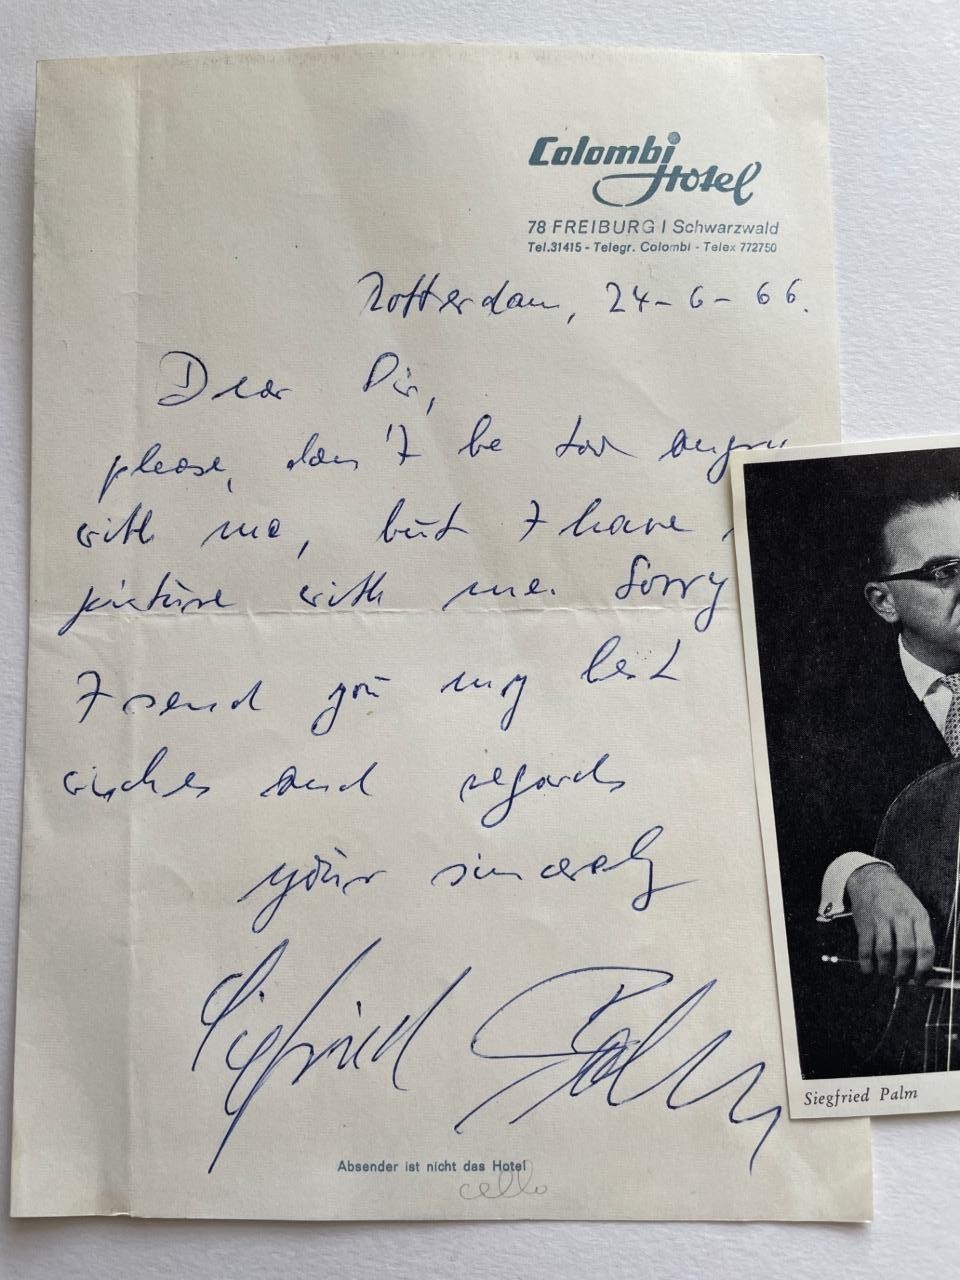 Colombi
Hotel
78 FREIBURG I Schwarzwald
Tel.31415 - Telegr. Colombi - Telex 772750
Rotterdam, 24-6-66.
Dear Sir,
please, don't be too angry
with me, but I have
picture with me. Sorry
I send you my best
wishes and regards
your sincerely
Siegfried Palm
Absender ist nicht das Hotel
cello
Siegfried Palm